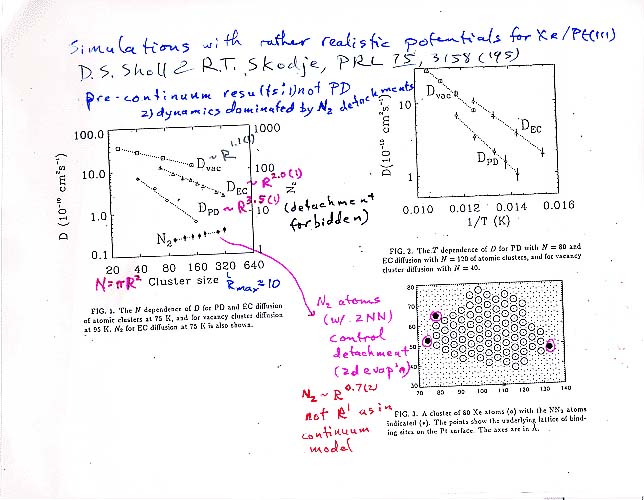 Simulations with rather realistic potentials for Xe/Pt(111)
D.S. Sholl & R.T. Skodje, PRL 75, 3158 ('95)
pre-continuum results: 1) not PD
2) dynamics dominated by N₂ detachments
100.0
10.0
1.0
0.1
D (10⁻¹⁰ cm²s⁻¹)
1000
100
10
1
N₂
Dvac ~ R^1.1(1)
DEC ~ R^2.0(1)
DPD ~ R^3.5(1)
(detachment
forbidden)
N₂
20 40 80 160 320 640
N=πR² Cluster size
Rmax≈10
FIG. 1. The N dependence of D for PD and EC diffusion
of atomic clusters at 75 K, and for vacancy cluster diffusion
at 95 K. N₂ for EC diffusion at 75 K is also shown.
10
1
D(10⁻¹⁰ cm²s⁻¹)
Dvac
DEC
DPD
0.010 0.012 0.014 0.016
1/T (K)
FIG. 2. The T dependence of D for PD with N = 80 and
EC diffusion with N = 120 of atomic clusters, and for vacancy
cluster diffusion with N = 40.
N₂ atoms
(w/ 2NN)
control
detachment
(2d evap'n)
N₂ ~ R^0.7(2)
not R¹ as in
continuum
model
80
70
60
50
40
30
70 80 90 100 110 120 130 140
FIG. 3. A cluster of 80 Xe atoms (o) with the NN₂ atoms
indicated (•). The points show the underlying lattice of bind-
ing sites on the Pt surface. The axes are in Å.